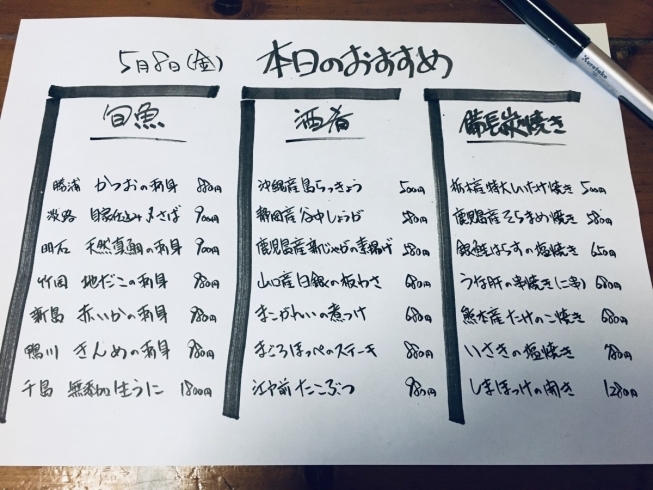 5月8日(金) 本日のおすすめ
旬魚
勝浦 かつおの刺身 880円
淡路 自家仕込み〆さば 900円
明石 天然真鯛の刺身 900円
竹岡 地だこの刺身 980円
新島 赤いかの刺身 980円
鴨川 きんめの刺身 980円
千島 無添加生うに 1800円
酒肴
沖縄産島らっきょう 500円
静岡産谷中しょうが 580円
鹿児島産新じゃがの素揚げ 580円
山口産白銀の板わさ 680円
まこがれいの煮つけ 680円
まぐろほっぺのステーキ 880円
江戸前たこぶつ 980円
備長炭焼き
栃木産特大しいたけ焼き 500円
鹿児島産そらまめ焼き 580円
銀鮭はらすの塩焼き 650円
うな肝の串焼き(二串) 680円
熊本産たけのこ焼き 680円
いさきの塩焼き 780円
しまほっけの開き 1280円